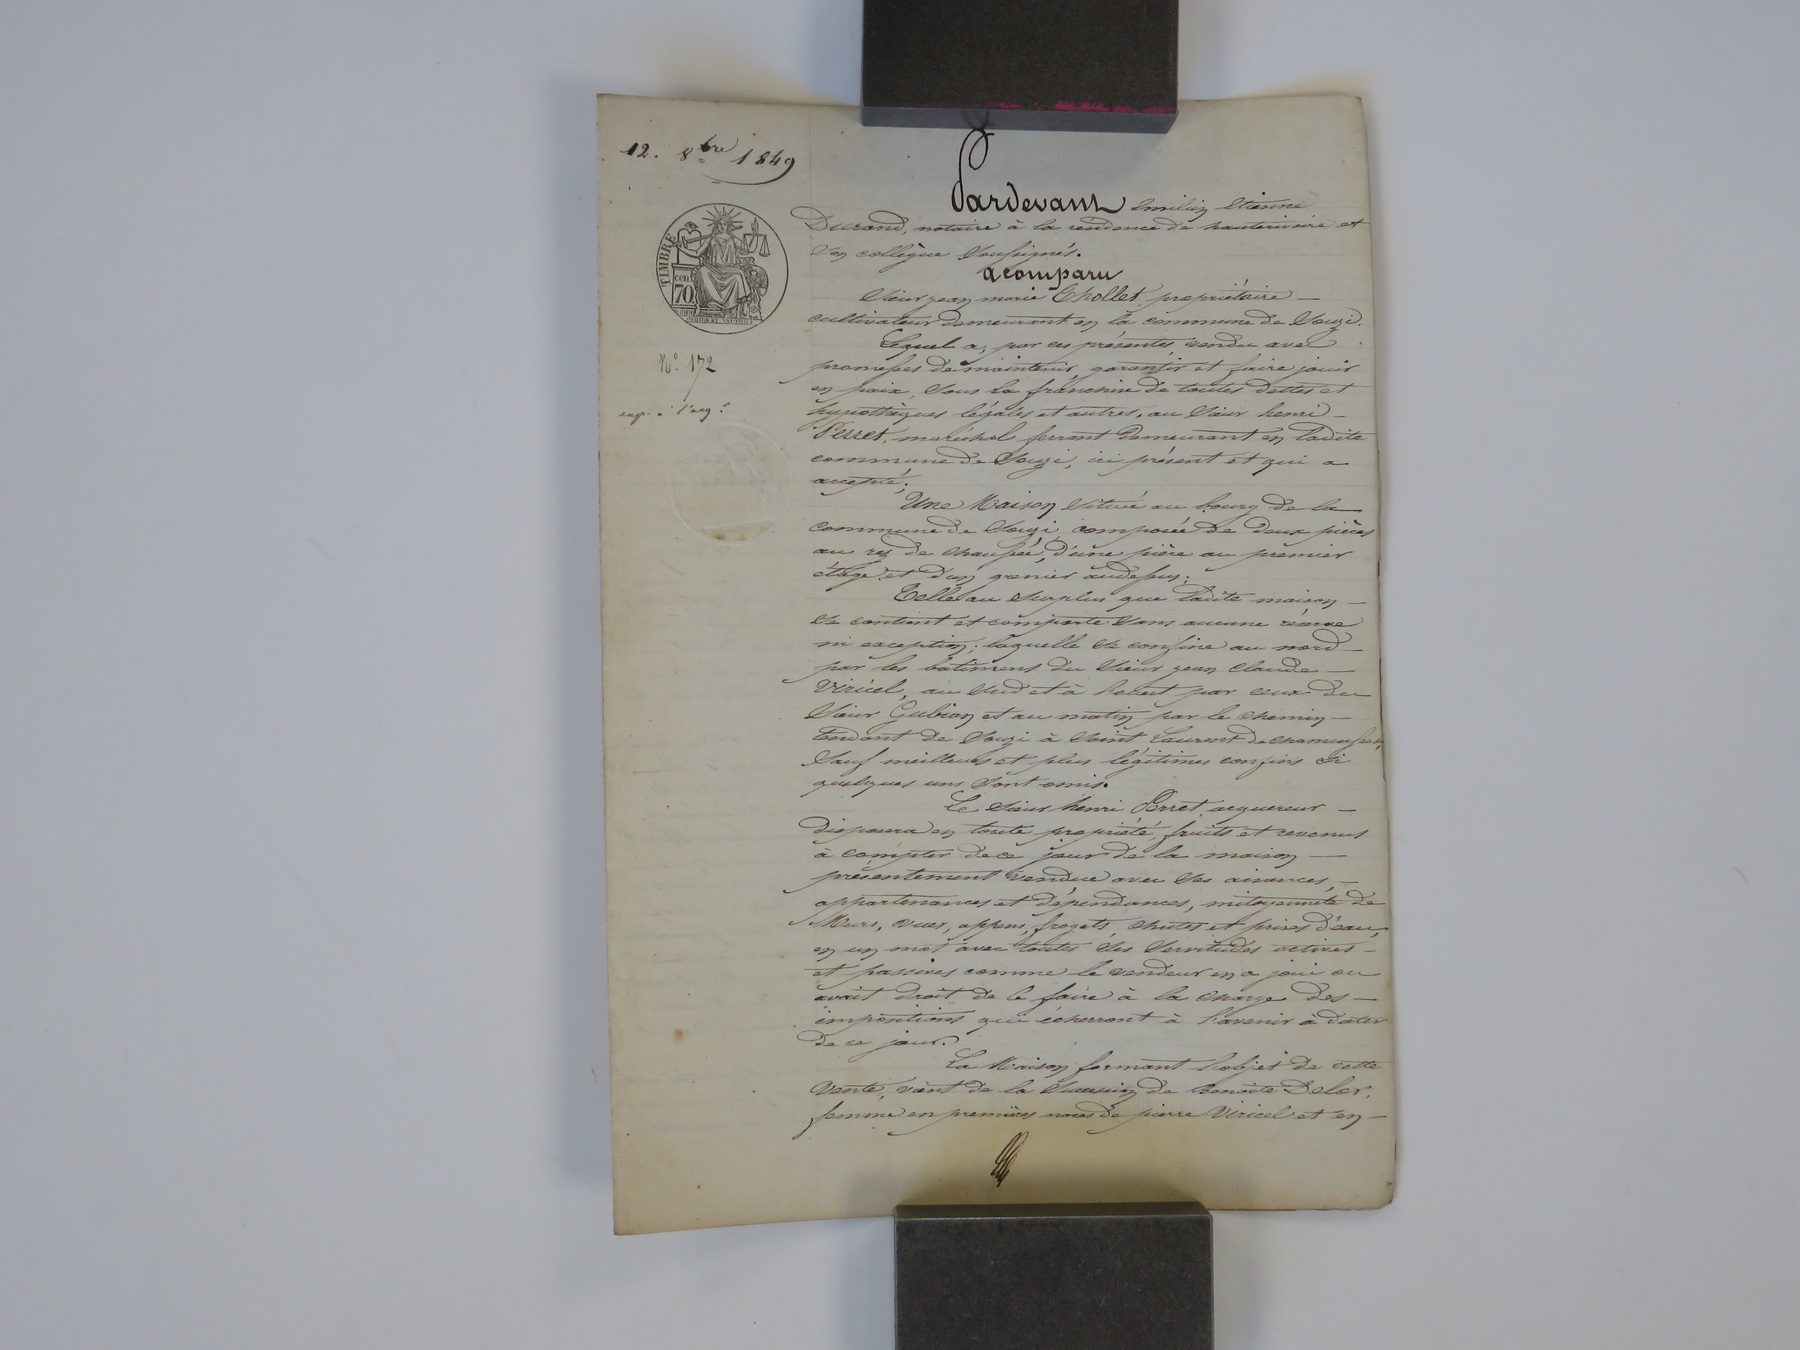 12. 8bre 1849
TIMBRE
cen
70
N.o 172
Pardevant Emilien Etienne
Durand, notaire à la residence de hauterivoire et
son collègue soussignés.
a comparu
Sieur jean marie Chollet, propriétaire —
cultivateur demeurant en la commune de Souzi.
Lequel a, par ces présentes, vendu avec
promesses de maintenir, garantir et faire jouir
en paix, sous la franchise de toutes dettes et
hypothèques légales et autres, au Sieur henri —
Perret, maréchal ferrant demeurant en ladite
commune de Souzi, ici présent et qui a
accepté;
Une Maison située au bourg de la
commune de Souzi, composée de deux pièces
au rez de chaussée, d'une pièce au premier
étage et d'un grenier audessus;
Telle au surplus que ladite maison —
se contient et comporte sans aucune réserve
ni exception; laquelle se confine au nord —
par les batimens du Sieur jean Claude —
Viricel, au sud et à l'ouest par ceux du
Sieur Gubian et au matin par le chemin —
tendant de Souzi à Saint Laurent de chamousset,
Sauf meilleurs et plus légitimes confins si
quelques uns sont omis.
Le Sieur henri Perret, acquereur —
disposera en toute propriété, fruits et revenus
à compter de ce jour de la maison —
présentement vendue avec ses aisances, —
appartenances et dépendances, mitoyenneté de
Murs, vues, appens, chutes et prises d'eau,
en un mot avec toutes ses servitudes actives —
et passives comme le vendeur en a joui ou
avait droit de le faire à la charge des —
impositions qui écherront à l'avenir à dater
de ce jour.
La Maison formant l'objet de cette
Vente, vient de la Succession de benoite Deler,
femme en premières noces de pierre Viricel et en —